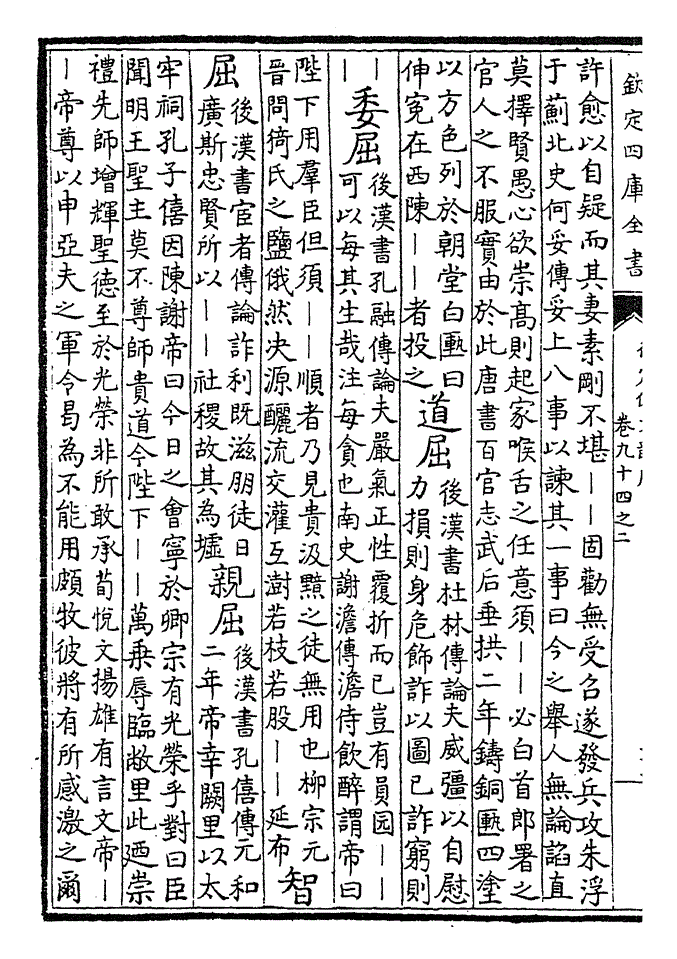 欽定四庫全書
卷九十四之二
許愈以自疑而其妻素剛不堪丨丨固勸無受召遂發兵攻朱浮
于薊北史何妥傳妥上八事以諫其一事曰今之舉人無論諂直
莫擇賢愚心欲崇髙則起家喉舌之任意須丨丨必白首郎署之
官人之不服實由於此唐書百官志武后垂拱二年鑄銅匭四塗
以方色列於朝堂白匭曰
伸寃在西陳丨丨者投之
道屈
後漢書杜林傳論夫威彊以自慰
力損則身危飾詐以圖已詐窮則
丨丨
委屈
後漢書孔融傳論夫嚴氣正性覆折而已豈有員园丨丨
可以每其生哉注每貪也南史謝澹傳澹侍飲醉謂帝曰
陛下用羣臣但須丨丨順者乃見貴汲黯之徒無用也柳宗元
晉問猗氏之鹽俄然决源釃流交灌互澍若枝若股丨丨延布
智屈
後漢書宦者傳論詐利既滋朋徒日
廣斯忠賢所以丨丨社稷故其為墟
親屈
後漢書孔僖傳元和
二年帝幸闕里以太
牢祠孔子僖因陳謝帝曰今日之會寧於卿宗有光榮乎對曰臣
聞明王聖主莫不尊師貴道今陛下丨丨萬乗辱臨敝里此迺崇
禮先師增輝聖德至於光榮非所敢承荀悅文揚雄有言文帝丨
丨帝尊以申亞夫之軍令曷為不能用頗牧彼將有所感激之爾